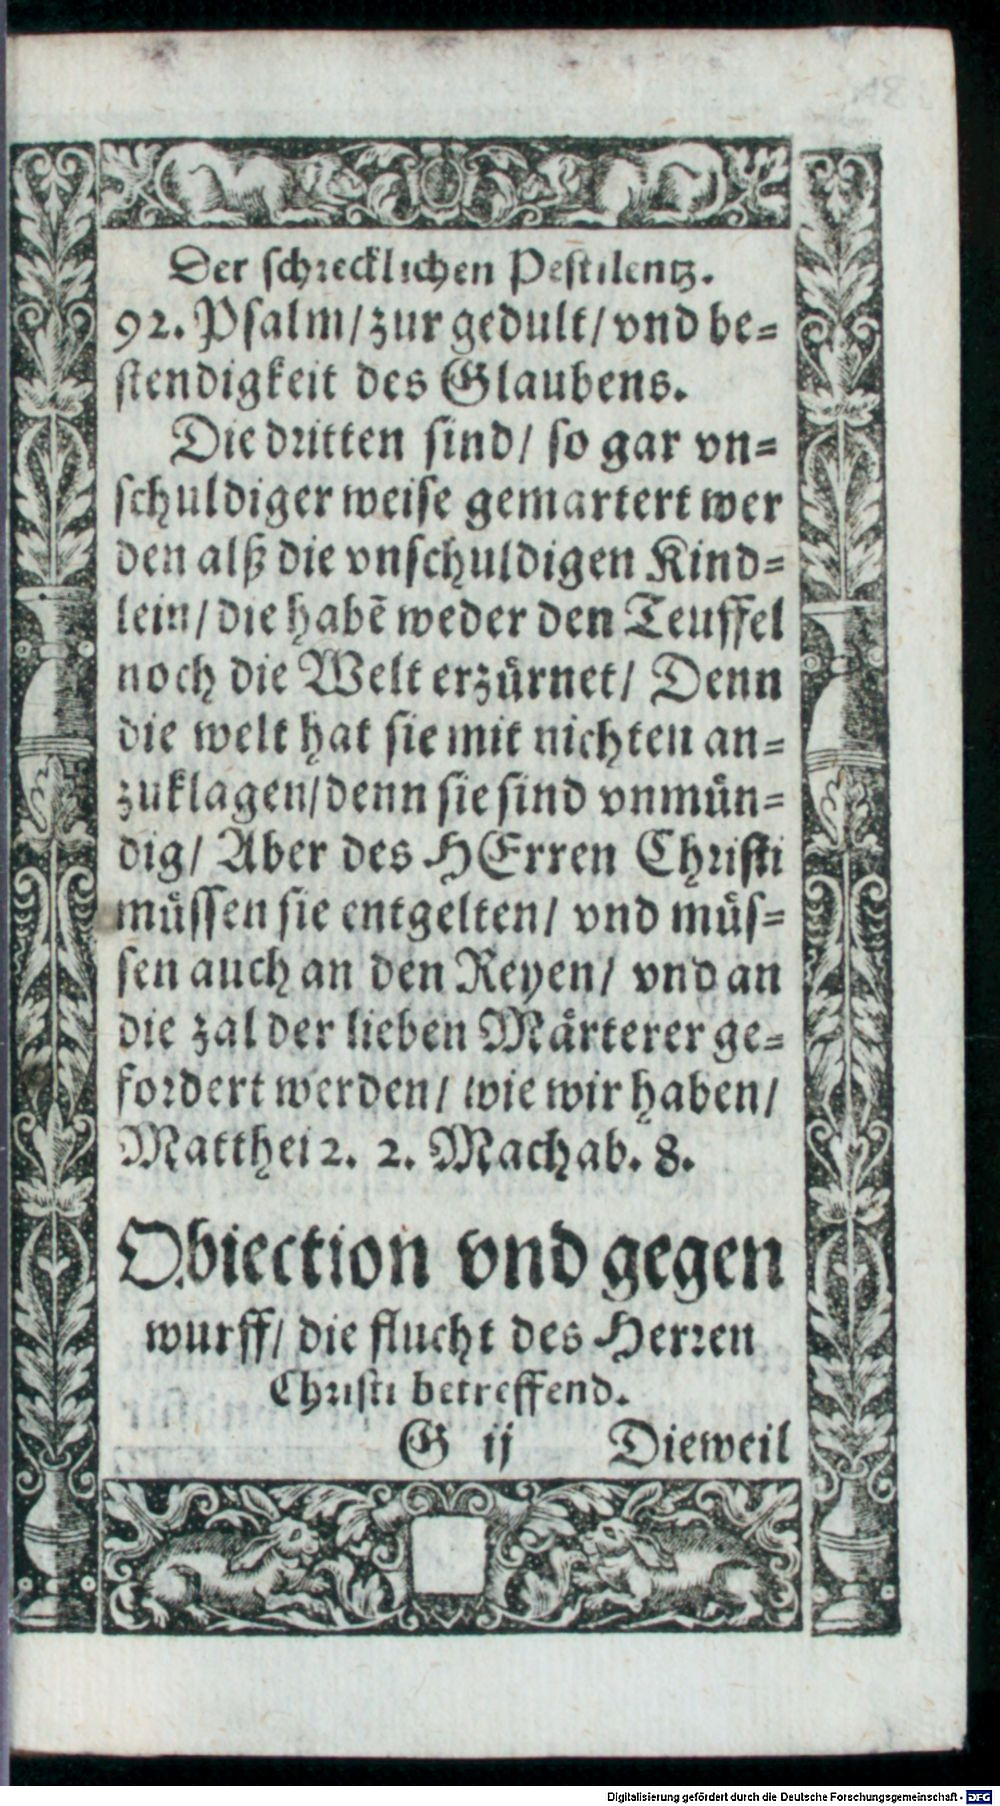 Der schrecklichen Pestilentz.
92. Psalm/ zur gedult/ vnd be=
stendigkeit des Glaubens.
Die dritten sind/ so gar vn=
schuldiger weise gemartert wer
den alß die vnschuldigen Kind=
lein/ die habẽ weder den Teuffel
noch die Welt erzuͤrnet/ Denn
die welt hat sie mit nichten an=
zuklagen/ denn sie sind vnmuͤn=
dig/ Aber des HErren Christi
muͤssen sie entgelten/ vnd muͤs=
sen auch an den Reyen/ vnd an
die zal der lieben Maͤrterer ge=
fordert werden/ wie wir haben/
Matthei 2. 2. Machab. 8.
Obiection vnd gegen
wurff/ die flucht des Herren
Christi betreffend.
G ij Dieweil
Digitalisierung gefördert durch die Deutsche Forschungsgemeinschaft - DFG